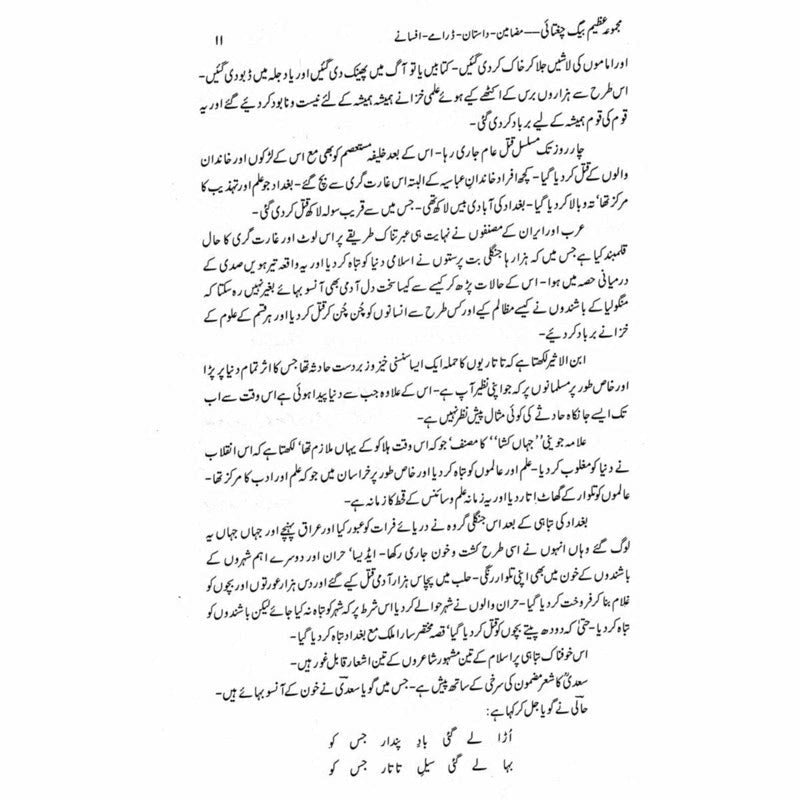 مجموعہ عظیم بیگ چغتائی — مضامین - داستان - ڈرامے - افسانے
۱۱
اور اماموں کی لاشیں جلا کر خاک کر دی گئیں - کتابیں یا تو آگ میں پھینک دی گئیں اور یا دجلہ میں ڈبو دی گئیں -
اس طرح سے ہزاروں برس کے اکٹھے کیے ہوئے علمی خزانے ہمیشہ ہمیشہ کے لئے نیست و نابود کر دیئے گئے اور یہ
قوم کی قوم ہمیشہ کے لیے برباد کر دی گئی -
چار روز تک مسلسل قتل عام جاری رہا - اس کے بعد خلیفہ مستعصم کو بھی مع اس کے لڑکوں اور خاندان
والوں کے قتل کر دیا گیا - کچھ افراد خاندانِ عباسیہ کے البتہ اس غارت گری سے بچ گئے - بغداد جو علم اور تہذیب کا
مرکز تھا، تہ و بالا کر دیا گیا - بغداد کی آبادی بیس لاکھ تھی - جس میں سے قریب سولہ لاکھ قتل کر دی گئی -
عرب اور ایران کے مصنفوں نے نہایت ہی عبرتناک طریقے پر اس لوٹ اور غارت گری کا حال
قلمبند کیا ہے جس میں کہ ہزارہا جنگلی بت پرستوں نے اسلامی دنیا کو تباہ کر دیا اور یہ واقعہ تیرہویں صدی کے
درمیانی حصہ میں ہوا - اس کے حالات پڑھ کر کیسے سے کیسا سخت دل آدمی بھی آنسو بہائے بغیر نہیں رہ سکتا کہ
منگولیا کے باشندوں نے کیسے مظالم کیے اور کس طرح سے انسانوں کو چُن چُن کر قتل کر دیا اور ہر قسم کے علوم کے
خزانے برباد کر دیئے -
ابن الاثیر لکھتا ہے کہ تاتاریوں کا حملہ ایک ایسا سنسنی خیز و زبردست حادثہ تھا جس کا اثر تمام دنیا پر پڑا
اور خاص طور پر مسلمانوں پر کہ جو اپنی نظیر آپ ہے - اس کے علاوہ جب سے دنیا پیدا ہوئی ہے اس وقت سے اب
تک ایسے جانکاہ حادثے کی کوئی مثال پیش نظر نہیں ہے -
علامہ جوینی ’’جہاں کشا‘‘ کا مصنف، جو کہ اس وقت ہلاکو کے یہاں ملازم تھا، لکھتا ہے کہ اس انقلاب
نے دنیا کو مغلوب کر دیا - علم اور عالموں کو تباہ کر دیا اور خاص طور پر خراسان میں جو کہ علم اور ادب کا مرکز تھا -
عالموں کو تلوار کے گھاٹ اتار دیا اور یہ زمانہ علم و سائنس کے قحط کا زمانہ ہے -
بغداد کی تباہی کے بعد اس جنگلی گروہ نے دریائے فرات کو عبور کیا اور عراق پہنچے اور جہاں جہاں یہ
لوگ گئے وہاں انہوں نے اسی طرح کشت و خون جاری رکھا - ایڈیسا، حران اور دوسرے اہم شہروں کے
باشندوں کے خون میں بھی اپنی تلوار رنگی - حلب میں پچاس ہزار آدمی قتل کیے گئے اور دس ہزار عورتوں اور بچوں کو
غلام بنا کر فروخت کر دیا گیا - حران والوں نے شہر حوالے کر دیا اس شرط پر کہ شہر کو تباہ نہ کیا جائے لیکن باشندوں کو
تباہ کر دیا - حتیٰ کہ دودھ پیتے بچوں کو قتل کر دیا گیا، قصہ مختصر سارا ملک مع بغداد تباہ کر دیا گیا -
اس خوفناک تباہی پر اسلام کے تین مشہور شاعروں کے تین اشعار قابل غور ہیں -
سعدیؒ کا شعر مضمون کی سرخی کے ساتھ پیش ہے - جس میں گویا سعدیؒ نے خون کے آنسو بہائے ہیں -
حالیؔ نے گویا جل کر کہا ہے :
اُڑا لے گئی بادِ پندار جس کو
بہا لے گئی سیلِ تاتار جس کو